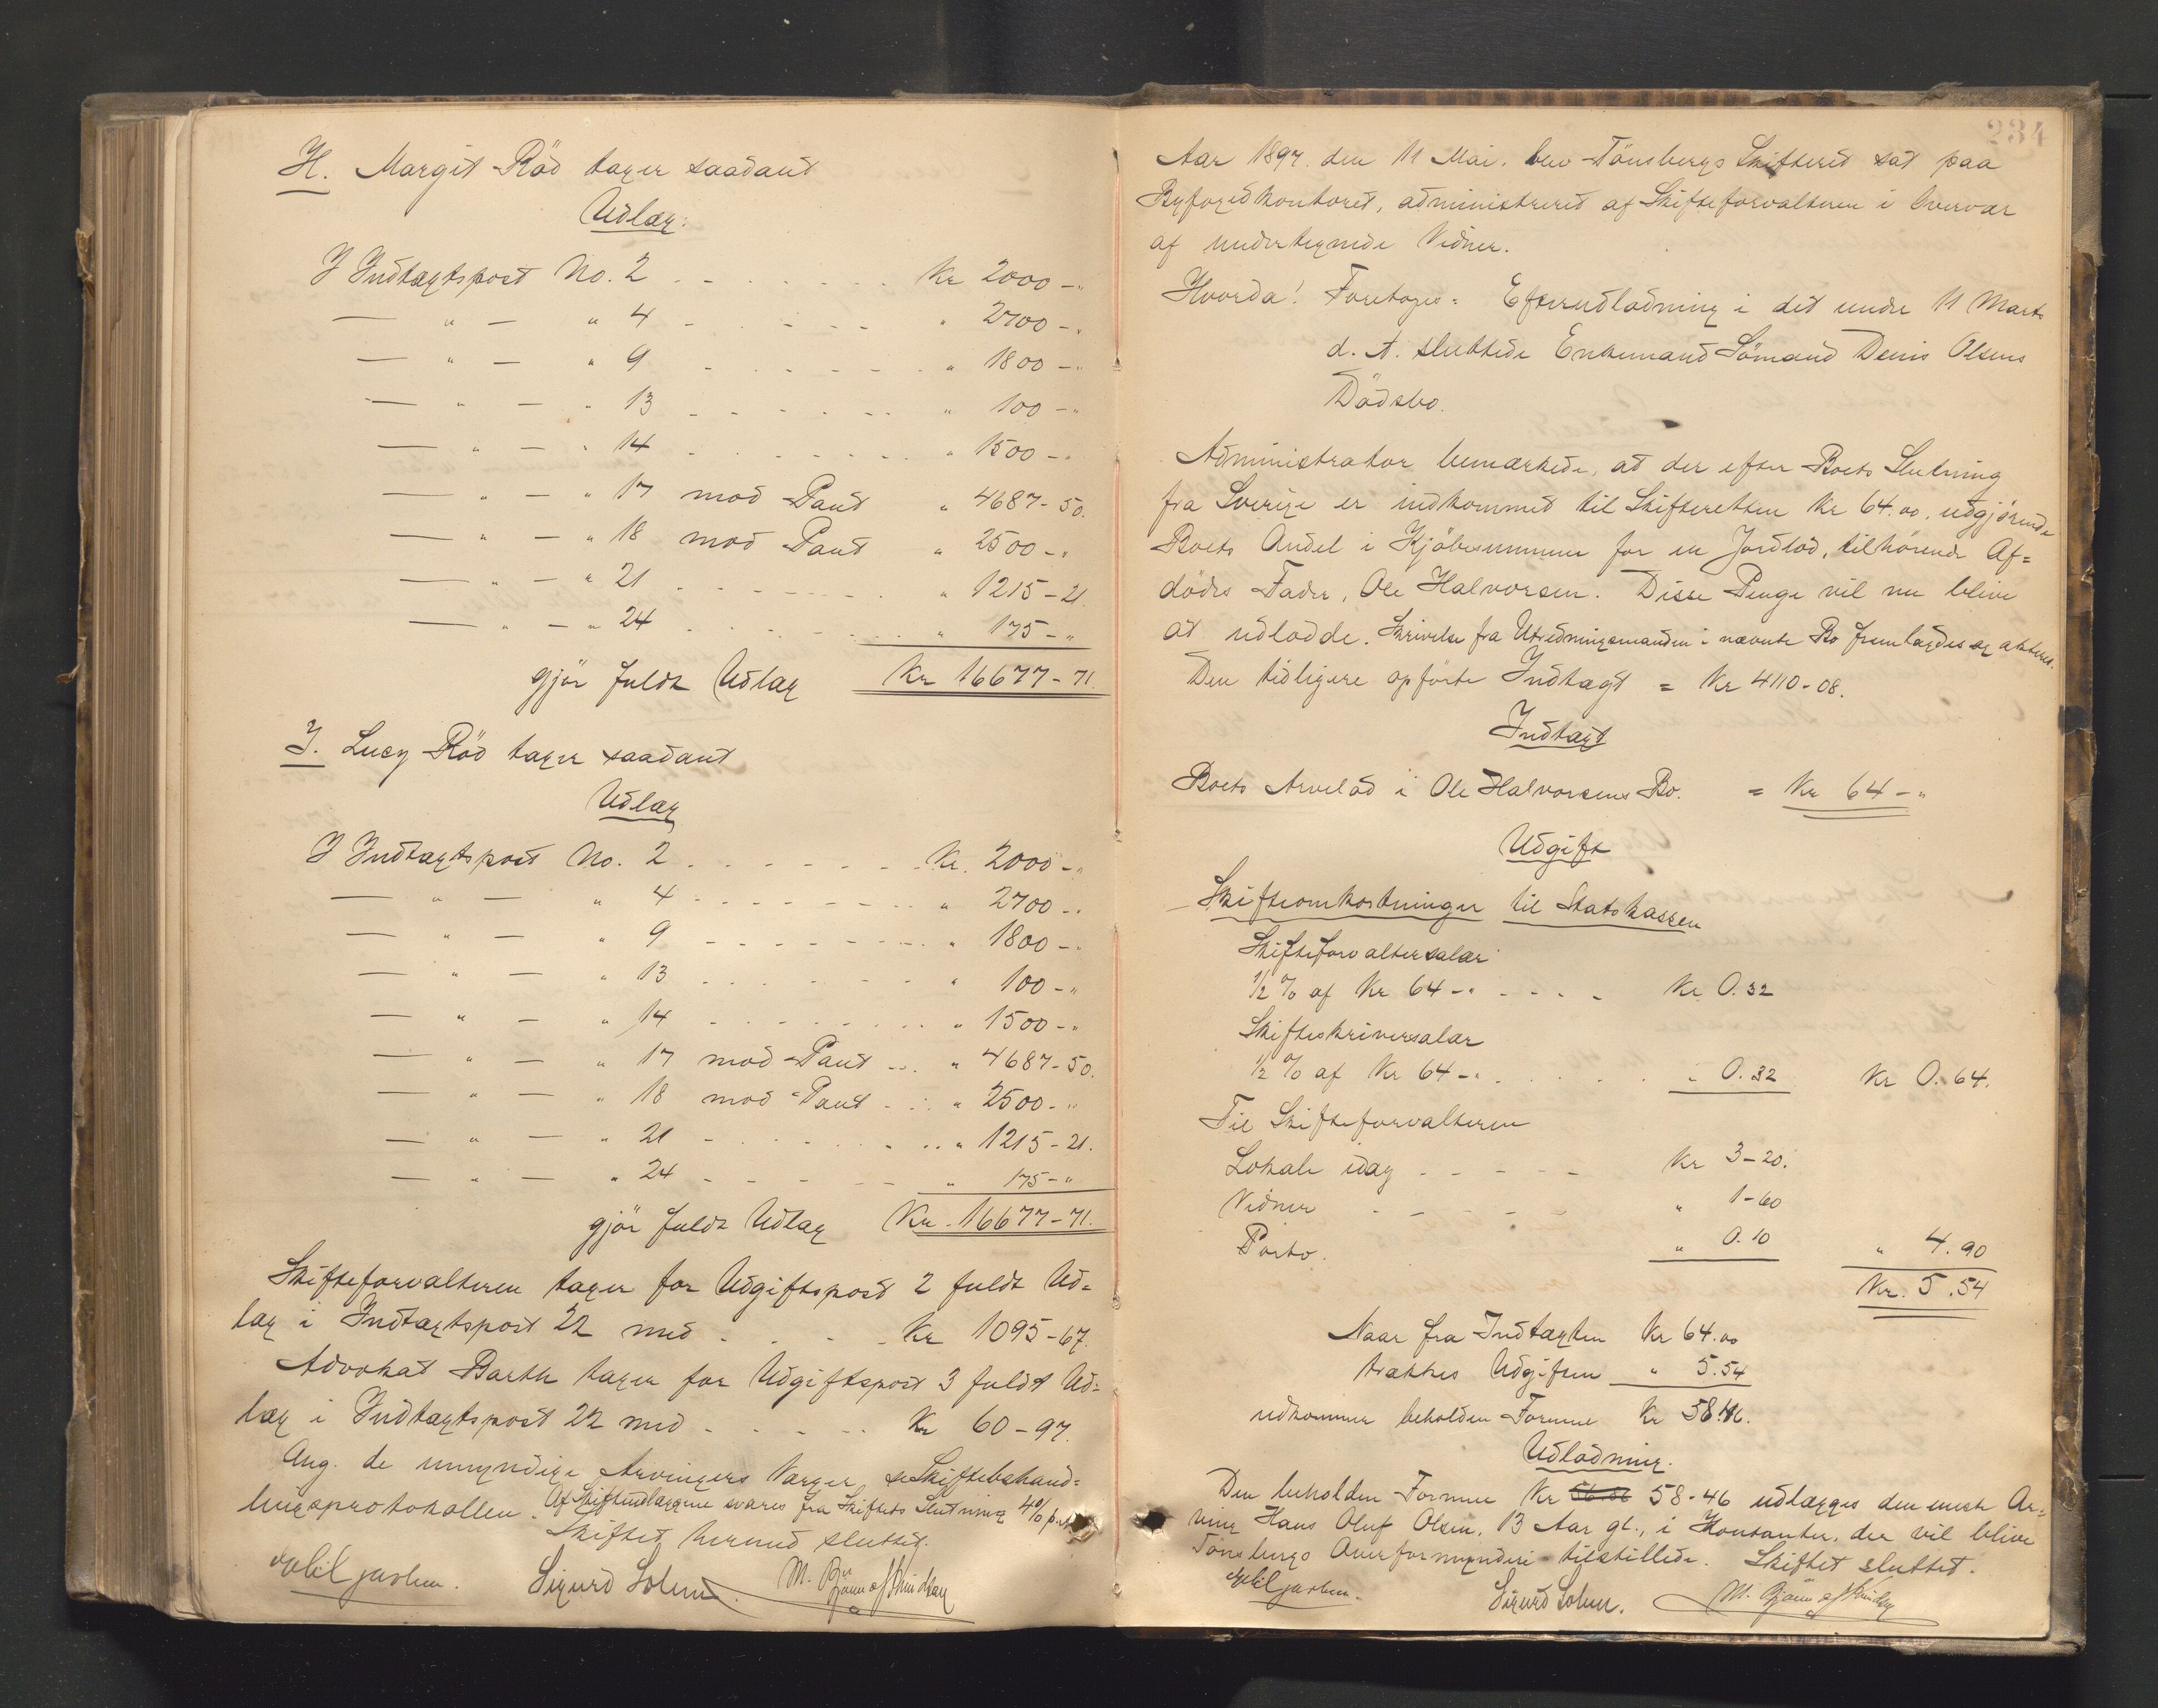 H. Margit Röd tager saadant
Udlæg:
I Indtægtspost No. 2 . . . . . . Kr 2000 - "
— " — " 4 - . . . . . " 2700 - "
— " — " 9 . . . . . . " 1800 - "
— " — " 13 . . . . . . " 100 - "
— " — " 14 . . . . . . " 1500 - "
— " — " 17 mod Pant " 4687 - 50.
— " — " 18 mod Pant " 2500 - "
— " — " 21 . . . . . . " 1215 - 21.
— " — " 24 . . . . . . " 175 - "
gjör fuldt Udlæg Kr 16677 - 71.
I. Lucy Röd tager saadant
Udlæg
I Indtægtspost No. 2 . . . . . . Kr. 2000 - "
— " — " 4 . . . . . . " 2700 - "
— " — " 9 . . . . . . " 1800 - "
— " — " 13 . . . . . . " 100 - "
— " — " 14 . . . . . . " 1500 - "
— " — " 17 mod Pant . . . " 4687 - 50.
— " — " 18 mod Pant . . . " 2500 - "
— " — " 21 . . . . . . " 1215 - 21.
— " — " 24 . . . . . . " 175 - "
gjör fuldt Udlæg Kr. 16677 - 71.
Skifteforvalteren tager for Udgiftspost 2 fuldt Ud=
læg i Indtægtspost 22 med . . . . Kr 1095 - 67.
Advokat Barth tager for Udgiftspost 3 fuldt Ud=
læg i Indtægtspost 22 med . . . . . Kr 60 - 97.
Ang. de umyndige Arvingers Værger, se Skiftebehand=
lingsprotokollen. Af Skifteudlæggene svares fra Skiftets Slutning 4% p.
Skiftet hermed sluttet.
Sigurd Solum. M. Bjönn
234
Aar 1897. den 11 Mai. blev Tönsbergs Skifteret sat paa
Byfogedkontoret, administreret af Skifteforvalteren i Overvær
af undertegnede Vidner.
Hvorda! Foretoges: Efterudlodning i det under 11 Marts
d. A. sluttede Enkemand Sömand Denis Olsens
Dödsbo.
Administrator bemærkede, at der efter Boets Slutning
fra Sverige er indkommet til Skifteretten Kr 64.00, udgjörende
Boets Andel i Kjöbesummen for en Jordlod, tilhörende Af=
dödes Fader, Ole Halvorsen. Disse Penge vil nu blive
at udlodde. Skrivelse fra Utredningsmanden i nævnte Bo fremlagdes og akteret.
Den tidligere opförte Indtægt = Kr 4110 - 08.
Indtægt
Boets Arvelod i Ole Halvorsens Bo. = Kr 64 - "
Udgift
Skifteomkostninger til Statskassen
Skifteforvaltersalær
1/2 % af Kr 64 - " . . . . Kr 0.32
Skifteskriversalær
1/2 % af Kr 64 - " . . . . . " 0.32 Kr 0.64.
Til Skifteforvalteren
Lokale idag . . . . . Kr 3 - 20.
Vidner . . . . . " 1 - 60
Porto. " 0.10 " 4.90
Kr. 5.54
Naar fra Indtægten Kr 64.00
trækkes Udgiften " 5.54
udkommer beholden Formue Kr 58.46.
Udlodning.
Den beholdne Formue Kr 58 - 46 udlægges den eneste Ar=
ving Hans Oluf Olsen, 13 Aar gl., i Kontanter, der vil blive
Tönsbergs Overformynderi tilstillede. Skiftet sluttet.
Sigurd Solum. M. Bjönn